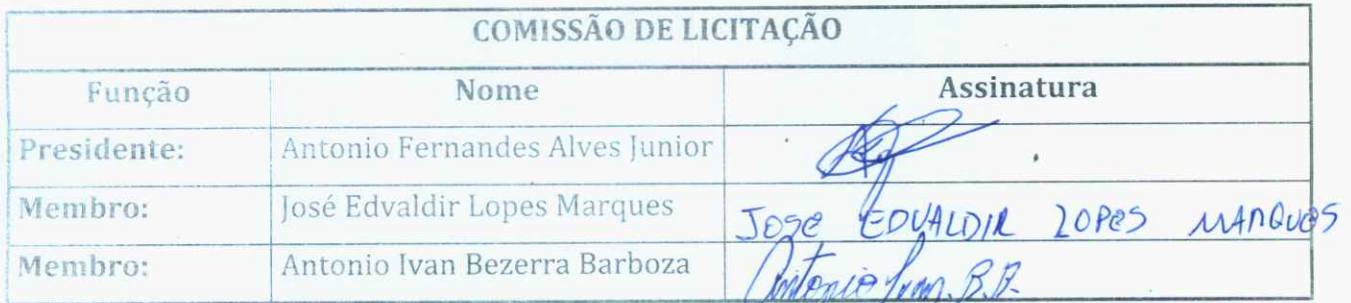 COMISSÃO DE LICITAÇÃO
Função Nome Assinatura
Presidente: Antonio Fernandes Alves Junior
Membro: José Edvaldir Lopes Marques JOSe EDVALDIR LOPeS MARQUeS
Membro: Antonio Ivan Bezerra Barboza Antonio Ivan. B.B.